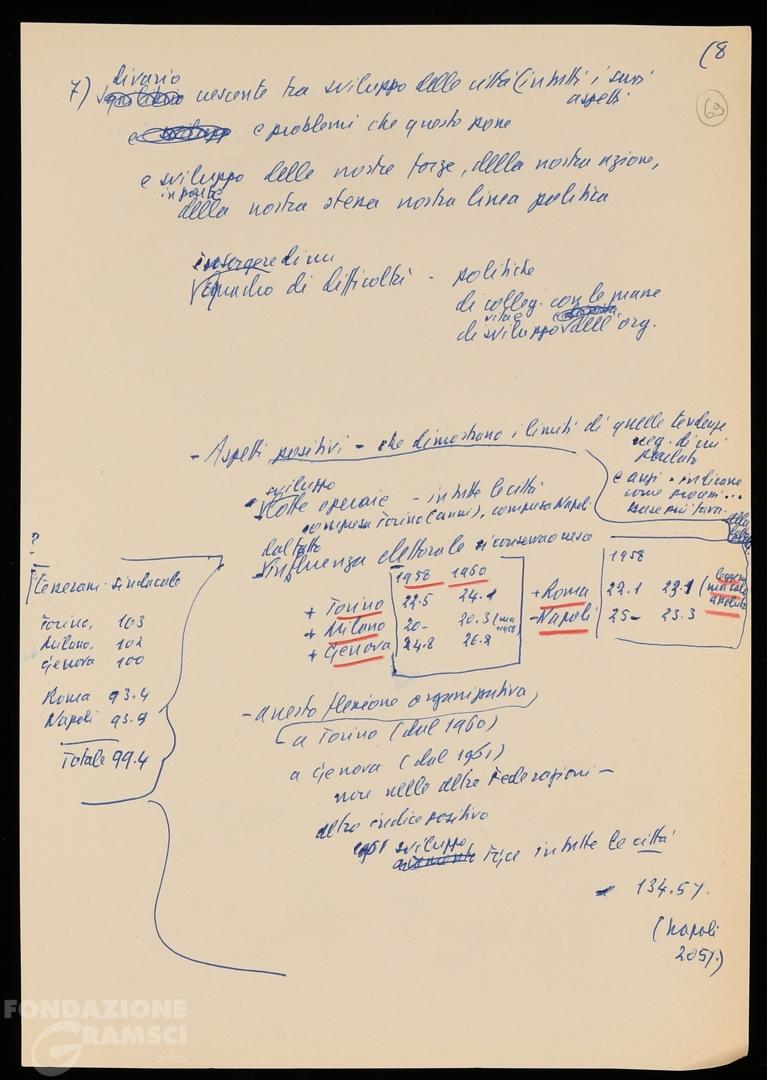 (8
69
7) divario crescente tra sviluppo delle città (in tutti i suoi
aspetti
e problemi che questo pone
e sviluppo delle nostre forze, della nostra azione,
in parte
della nostra stessa nostra linea politica
insorgere di un
quadro di difficoltà - politiche
di colleg. con le masse
di sviluppo dell'org.
- Aspetti positivi - che dimostrano i limiti di quelle tendenze
neg. di cui
parlato
e anzi - indicano
come
sviluppo
lotte operaie - in tutte le città
compresa Torino (anni), compresa Napoli
dal fatto
Influenza elettorale
1958 1960
+ Torino 22.5 24.1
+ Milano 20- 20.3 (ma
+ Genova 24.8 26.2
1958
+ Roma 22.1 23.1 (
- Napoli 25- 23.3
?
Tesseram. sindacale
Torino, 103
Milano, 102
Genova 100
Roma 93.4
Napoli 93.9
Totale 99.4
- arresto flessione organizzativa
a Torino (dal 1960)
a Genova (dal 1961)
non nelle altre Federazioni -
altro indice positivo
1961 sviluppo FGCI in tutte le città
134.5%
(Napoli
205%)
FONDAZIONE
GRAMSCI
onlus